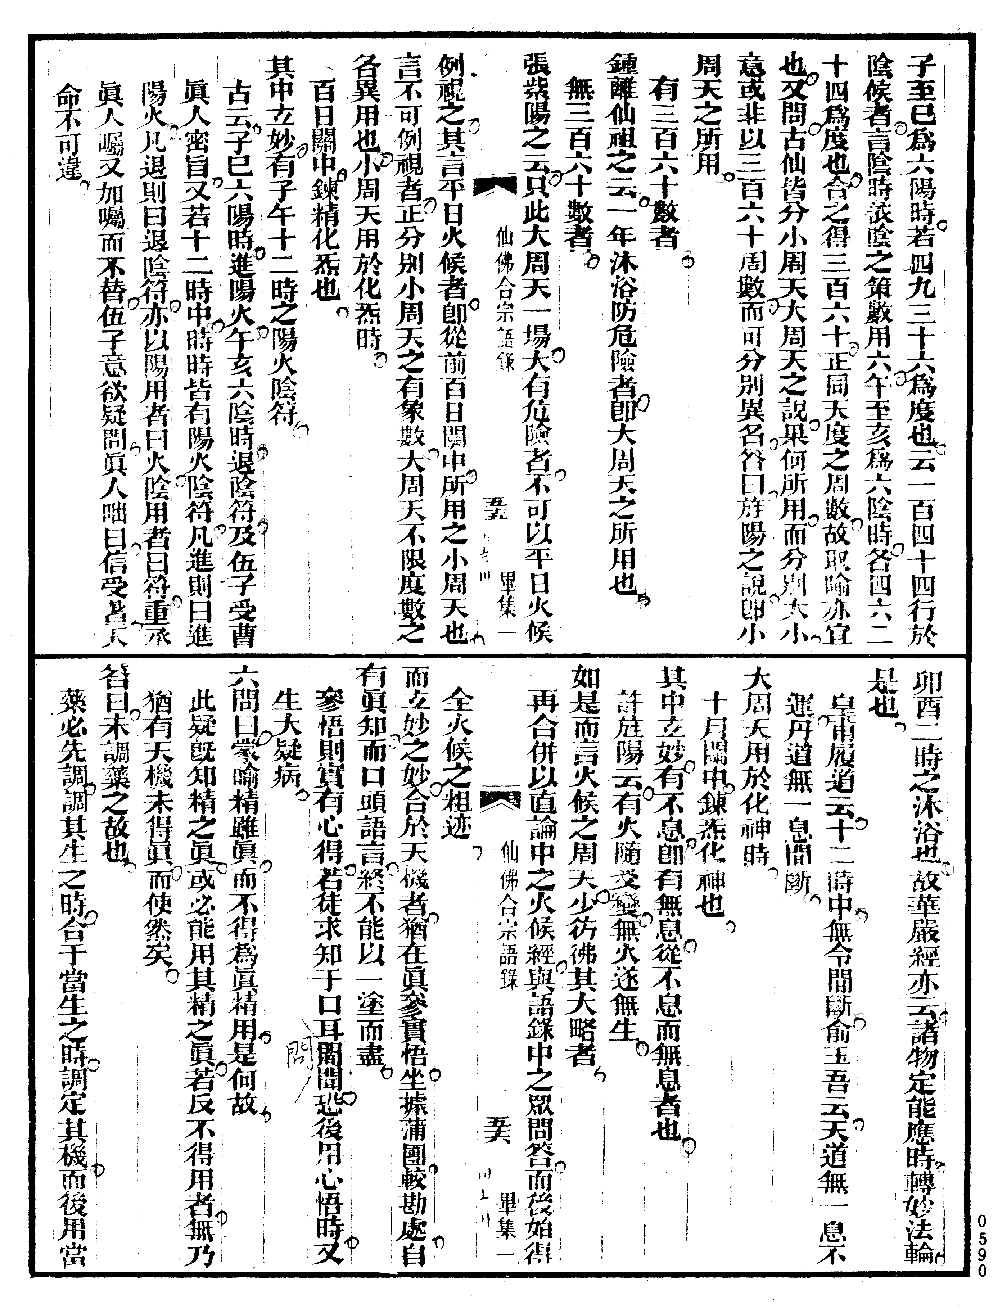 子至巳爲六陽時若四九三十六爲度也云一百四十四行於
陰候者言陰時泒陰之策數用六午至亥爲六陰時各四六二
十四爲度也合之得三百六十正同天度之周數故取喻亦宜
也又問古仙皆分小周天大周天之說果何所用而分別大小
意或非以三百六十周數而可分別異名答曰旌陽之說卽小
周天之所用
有三百六十數者
鍾離仙祖之云一年沐浴防危險者卽大周天之所用也
無三百六十數者
張紫陽之云只此大周天一場大有危險者不可以平日火候
仙佛合宗語錄
畢集一
例視之其言平日火候者卽從前百日關中所用之小周天也
言不可例視者正分別小周天之有象數大周天不限度數之
各異用也小周天用於化炁時
百日關中鍊精化炁也
其中立妙有子午十二時之陽火陰符
古云子巳六陽時進陽火午亥六陰時退陰符及伍子受曹
眞人密旨又若十二時中時時皆有陽火陰符凡進則曰進
陽火凡退則曰退陰符亦以陽用者曰火陰用者曰符重承
眞人囑又加囑而不替伍子意欲疑問眞人咄曰信受者天
命不可違
卯酉二時之沐浴也故華嚴經亦云諸物定能應時轉妙法輪
是也
皇甫履道云十二時中無令間斷俞玉吾云天道無一息不
運丹道無一息間斷
大周天用於化神時
十月關中鍊炁化神也
其中立妙有不息卽有無息從不息而無息者也
許旌陽云有火隨爻變無火逐無生
如是而言火候之周天少彷彿其大略者
再合併以直論中之火候經與語錄中之眾問答而後始得
仙佛合宗語錄
畢集一
全火候之粗迹
而立妙之妙合於天機者猶在眞參實悟坐據蒲團較勘處自
有眞知而口頭語言終不能以一塗而盡
參悟則實有心得若徒求知于口耳閒聞恐後用心悟時又
問
生大疑病
六問曰蒙喻精雖眞而不得爲眞精用是何故
此疑旣知精之眞或必能用其精之眞若反不得用者無乃
猶有天機未得眞而使然矣
答曰未調藥之故也
藥必先調調其生之時合于當生之時調定其機而後用當
0590